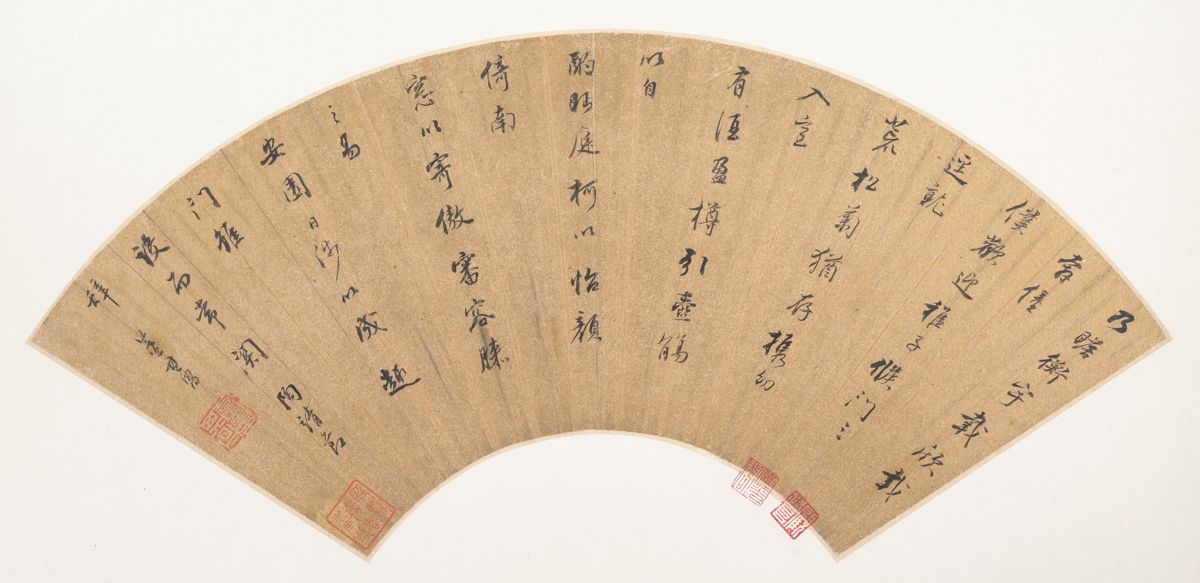 乃瞻衡宇載欣載
奔僮
僕歡迎稚子候門三
逕就
荒松菊猶存携幼
入室
有酒盈樽引壺觴
以自
酌眄庭柯以怡顏
倚南
窓以寄傲審容膝
之易
安園日涉以成趣
門雖
設而常関陶靖節
辭
董其昌